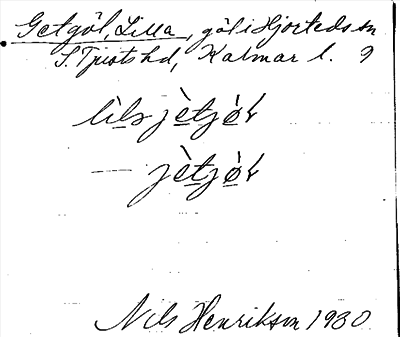 Getgöl, Lilla, göl i Hjorteds sn
S. Tjusts hd, Kalmar l. 9
lìls jètjø̀l
— jètjø̀l
Nils Henrikson 1930